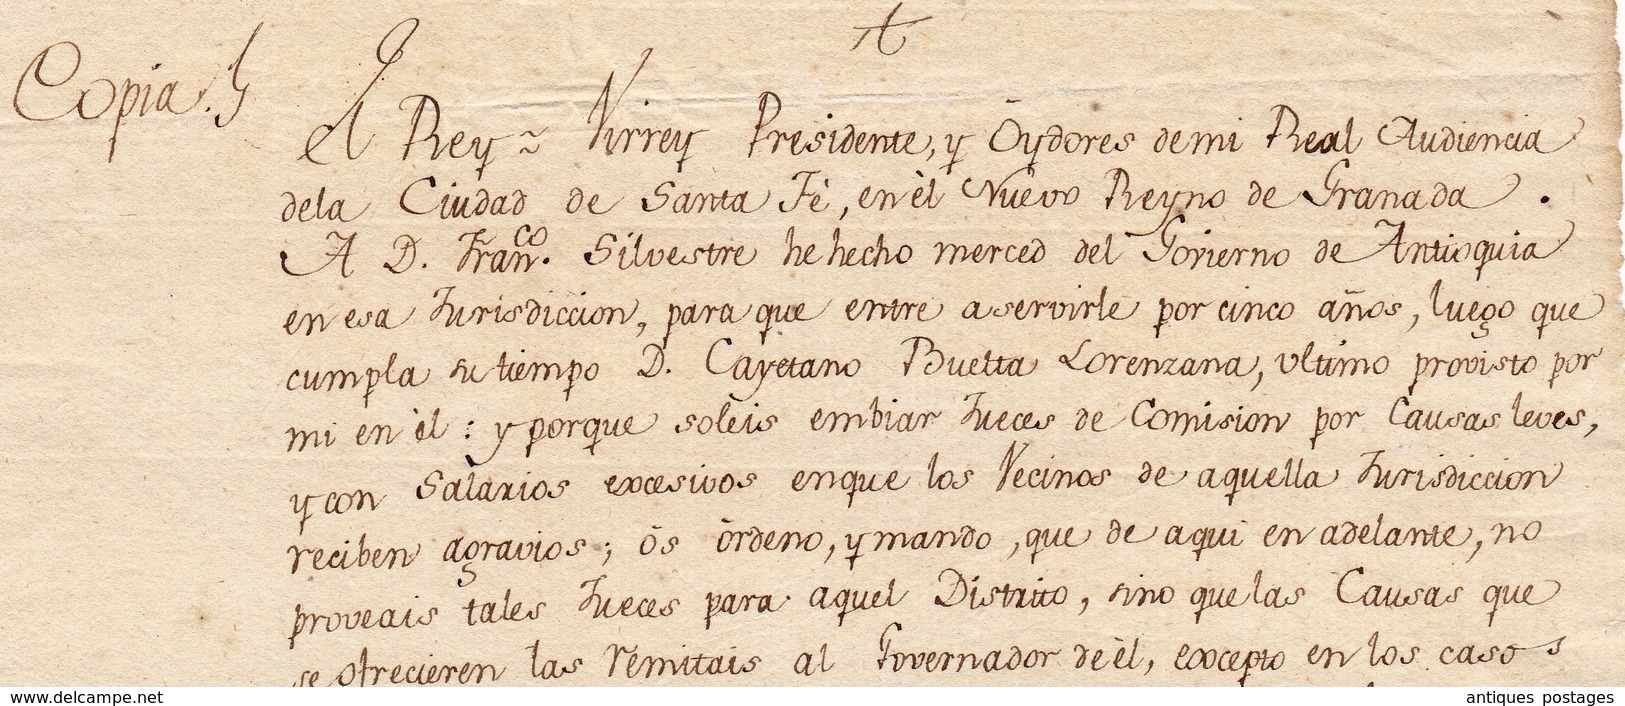 Copia.
El Rey ~ Virrey Presidente, y Òydores de mi Real Audiencia
dela Ciudad de Santa Fè, en èl Nuevo Reyno de Granada.
A D. Fran.co Silvestre he hecho merced del Govierno de Antioquia
en esa Jurisdiccion, para que entre a servirle por cinco años, luego que
cumpla su tiempo D. Cayetano Buelta Lorenzana, ultimo provisto por
mi en èl: y porque soleis embiar Jueces de Comision por Causas leves,
y con Salarios excesivos en que los Vecinos de aquella Jurisdiccion
reciben agravios; òs òrdeno, y mando, que de aqui en adelante, no
proveais tales Jueces para aquel Distrito, sino que las Causas que
se ofrecieren las remitais al Governador de èl, excepto en los casos
www.delcampe.net
antiques postages